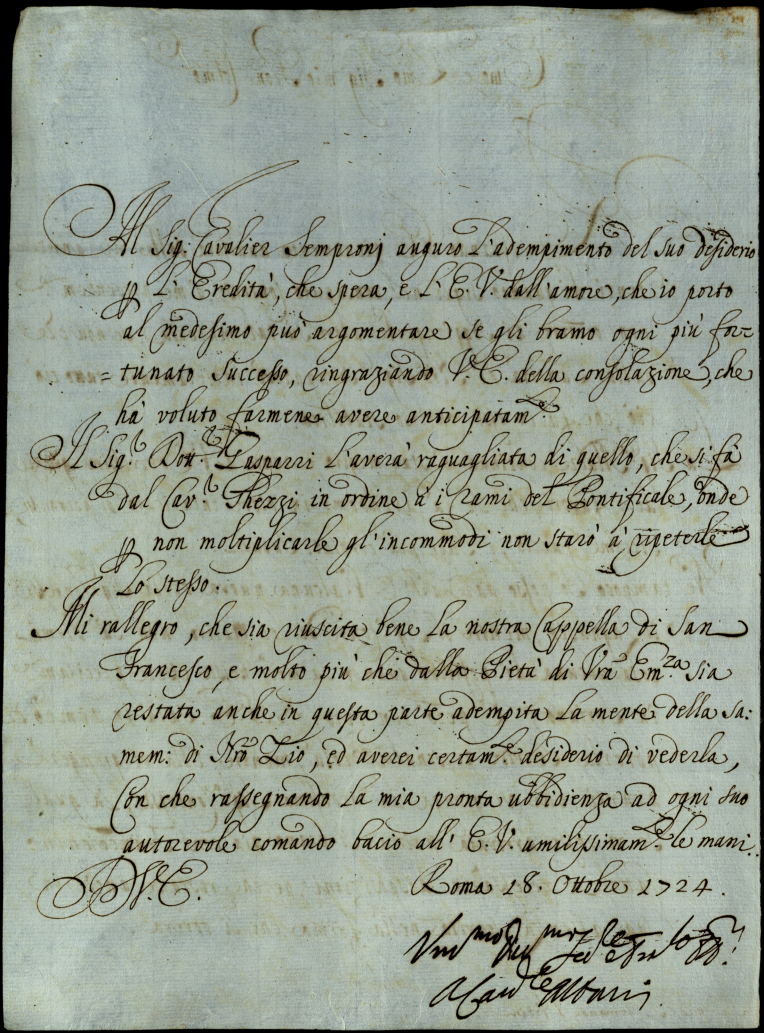 Al Sig.r Cavalier Sempronj auguro l'adempimento del suo desiderio
p l'Eredità, che spera, e l'E.V. dall'amore, che io porto
al medesimo può argomentare se gli bramo ogni più for=
=tunato successo, ringraziando V.E. della consolazione, che
hà voluto farmene avere anticipatam.te
Il Sig.r Dott.r Gasparri l'averà raguagliata di quello, che si fà
dal Cav.r Ghezzi in ordine à i rami del Pontificale, onde
p non moltiplicarle gl'incommodi non starò à ripeterle
lo stesso.
Mi rallegro, che sia riuscita bene la nostra Cappella di San
Francesco, e molto più che dalla Pietà di Vrã Em.za sia
restata anche in questa parte adempita la mente della sa:
mem: di Nrõ Zio, ed averei certam.te desiderio di vederla,
Con che rassegnando la mia pronta ubbidienza ad ogni suo
autorevole comando bacio all'E.V. umilissimam.te le mani.
V.E.
Roma 18. Ottobre 1724.
A Card.le Albani